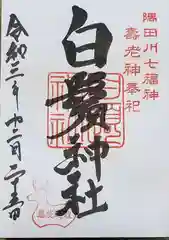 隅田川七福神
壽老神奉祀
白鬚神社
令和三年十二月二十五日